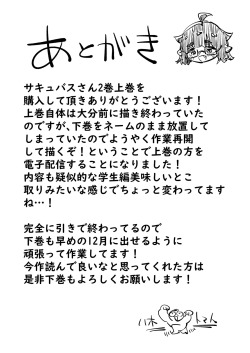 あとがき
サキュバスさん2巻上巻を
購入して頂きありがとうございます！
上巻自体は大分前に描き終わっていた
のですが、下巻をネームのまま放置して
しまっていたのでようやく作業再開
して描くぞ！ということで上巻の方を
電子配信することになりました！
内容も疑似的な学生編美味しいとこ
取りみたいな感じでちょっと変わってます
ね…！
完全に引きで終わってるので
下巻も早めの12月に出せるように
頑張って作業してます！
今作読んで良いなと思ってくれた方は
是非下巻もよろしくお願いします！